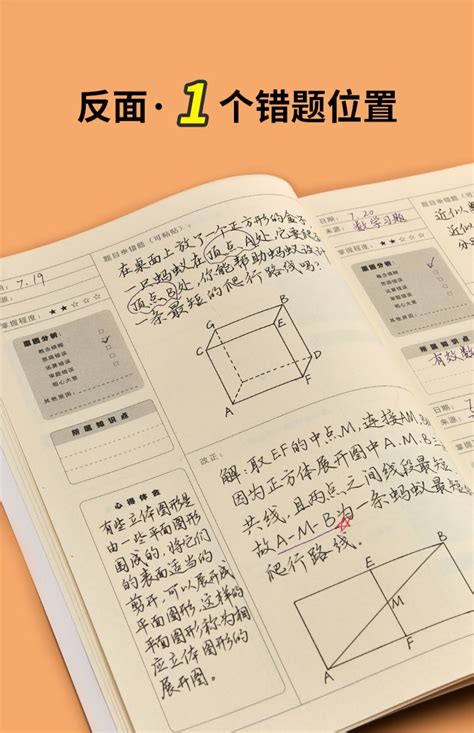 反面·1个错题位置
日期：7.19
来源：
掌握程度：★★☆☆☆
错题分析：
概念模糊
思路错误
运算错误
审题错误
粗心大意
其他原因：
所属知识点
心得体会
有些立体图形是
由一些平面图形
围成的，将它们
的表面适当的
剪开，可以展开成
平面图形，这样的
平面图形称为相
应立体图形的
展开图。
题目来错题（可粘贴）：
在桌面上放了一个正方形的盒子
一只蚂蚁在顶点A处，它要爬
顶点B处，你能帮助蚂蚁设计
一条最短的爬行路线吗？
G
B
C
E
D
A
F
改正：
解：取EF的中点M，连接AM、B
因为正方体展开图中A、M、B三
共线，且两点之间线段最短
故A-M-B为一条蚂蚁最短
爬行路线。
E
B
M
A
F
日期：7.20
来源：数学习题
掌握程度：★
错题分析：
概念模糊
思路错误
运算错误
审题错误
粗心大意
其他原因：
近似
有效数
日期：
来源：
掌握程度